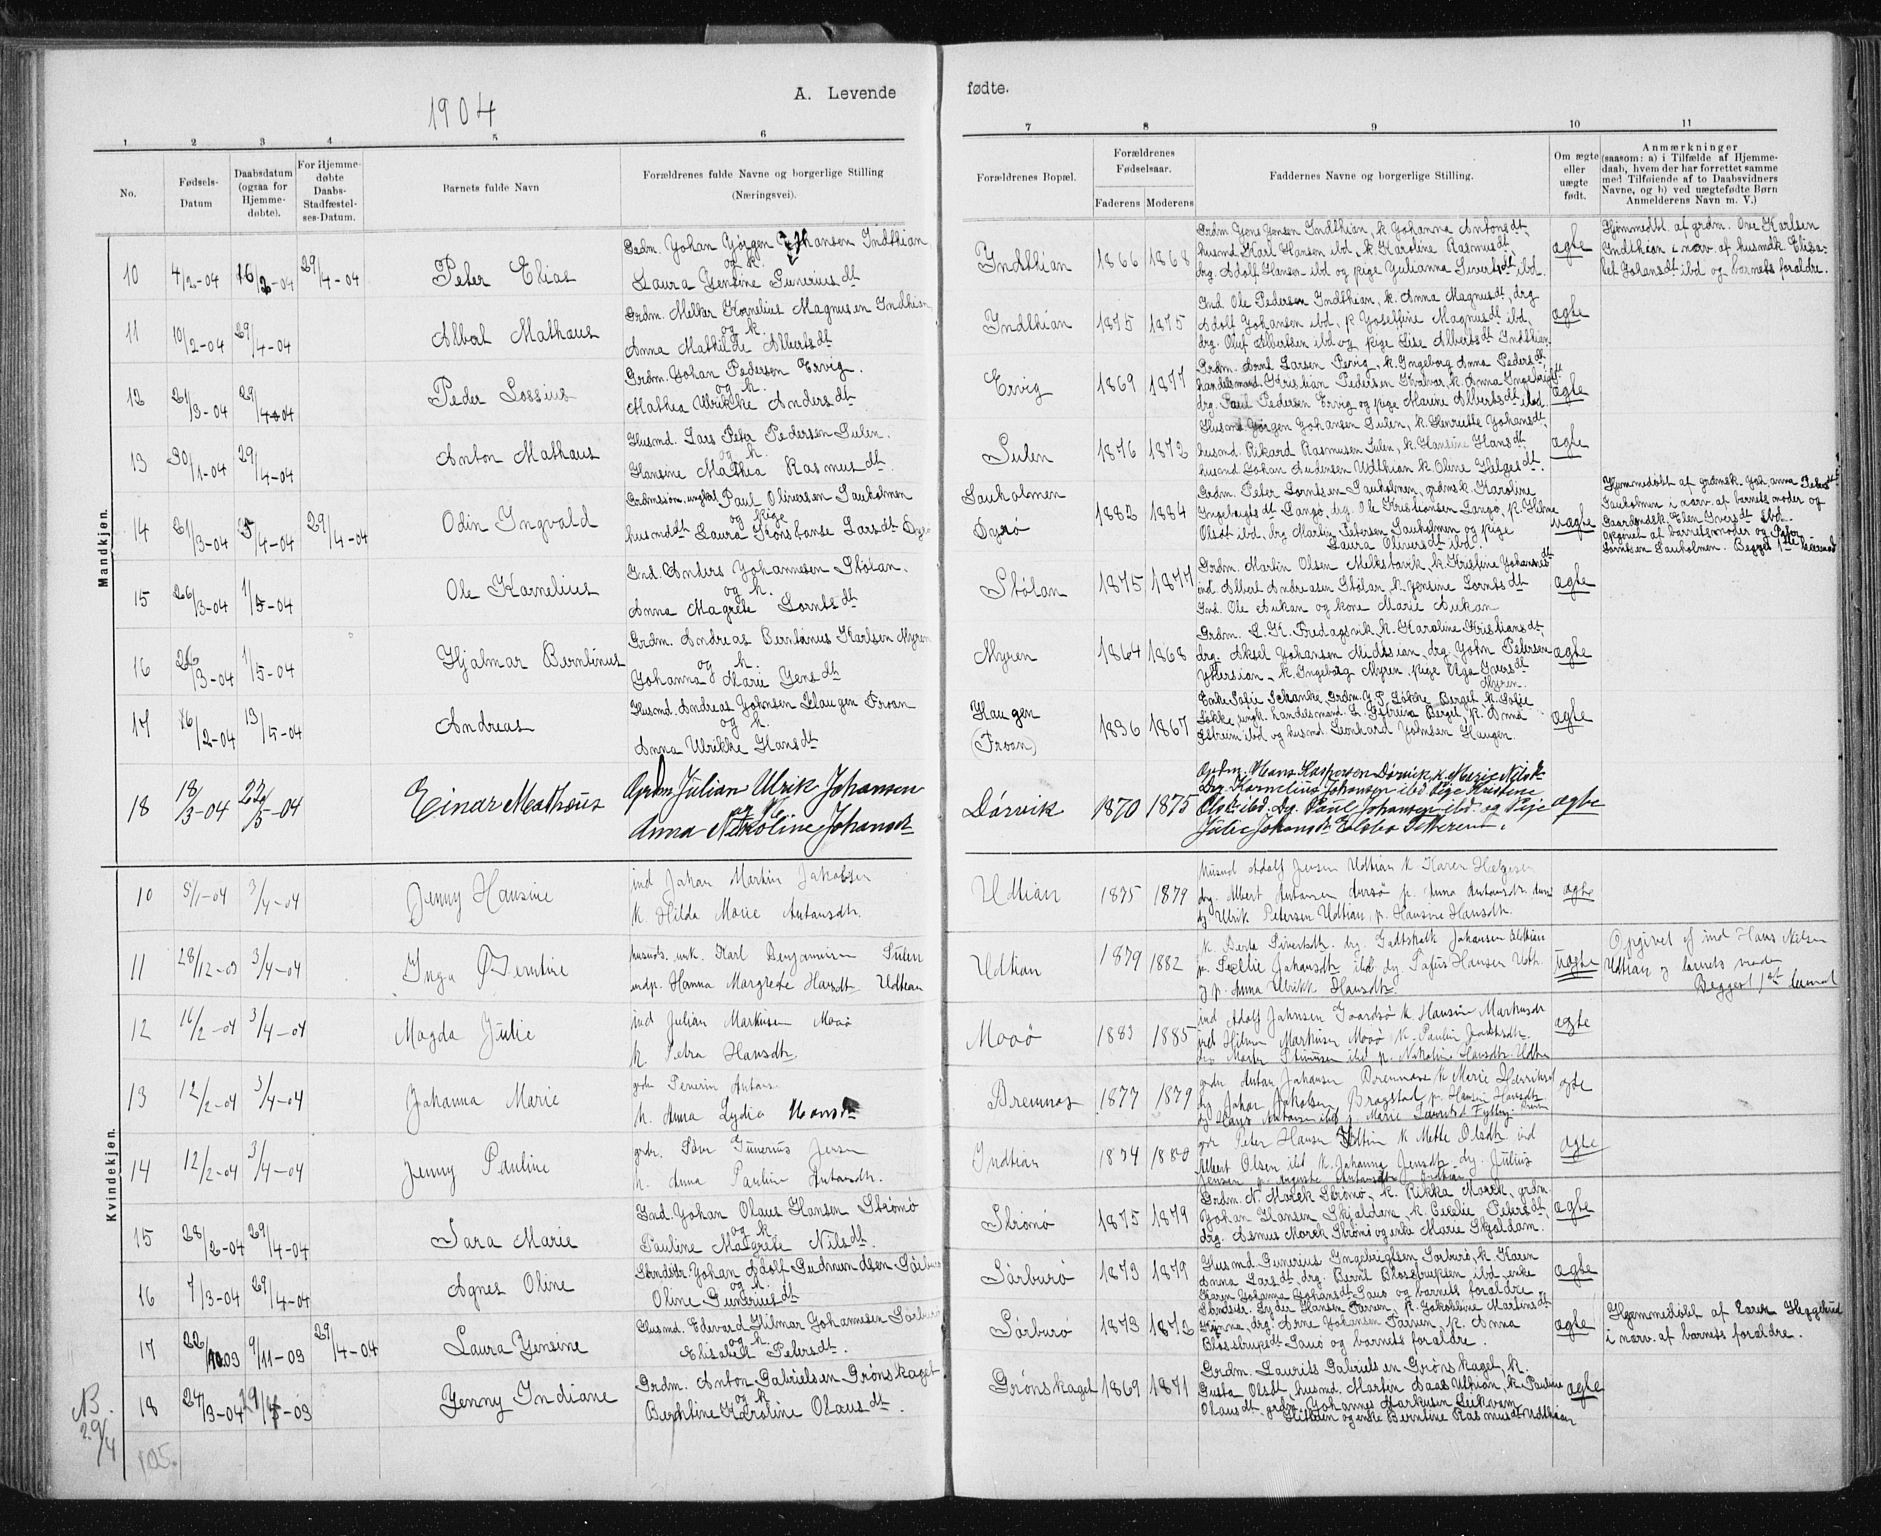 1904
A. Levende fødte.
1 2 3 4 5 6 7 8 9 10 11
No.
Fødsels-Datum
Daabsdatum (ogsaa for Hjemme-døbte).
For Hjemme-døbte Daabs-Stadfæstel-ses-Datum.
Barnets fulde Navn
Forældrenes fulde Navne og borgerlige Stilling (Næringsvei).
Forældrenes Bopæl.
Forældrenes Fødselsaar.
Faderens Moderens
Faddernes Navne og borgerlige Stilling.
Om ægte eller uægte født.
Anmærkninger
(saasom: a) i Tilfælde af Hjemme-
daab, hvem der har forrettet samme
med Tilføiende af to Daabsvidners
Navne, og b) ved uægtefødte Børn
Anmelderens Navn m. V.)
Mandkjøn.
10 4/2-04 16/2-04 29/4-04 Peter Elias
Grdm. Johan Jørgen Johansen Indthian
og k.
Laura Jensine Guneriusdt
Indthian 1866 1868
Grdm Jens Jensen Indthian, k. Johanna Antonsdt,
husmd. Karl Hansen ibd, k. Karoline Rasmusdt,
drg. Adolf Hansen ibd og pige Julianna Sivertsdt ibd.
ægte
Hjemmedbt. af grdm. Ove Karlsen
Indthian i nærv. af husmdk. Elisa-
bet Johansdt ibd og barnets forældre.
11 10/2-04 29/4-04 Albert Mathæus
Grdm. Melker Kornelius Magnusen Indthian
og k.
Anna Mathilde Albertsdt
Indthian 1875 1875
Ind. Ole Pedersen Indthian, k. Anna Magnusdt, drg
Adolf Johansen ibd, p. Josefine Magnusdt ibd,
drg. Oluf Albertsen ibd og pige Elise Albertsdt Indthian
ægte
12 21/3-04 29/4-04 Peder Lossius
Grdm. Johan Pedersen Ervig.
og k.
Mathea Ulrikke Andersdt
Ervig 1869 1877
Grdm. Arnt Larsen Ervig, k. Ingeborg Anna Pedersdt
handelsmand. Kristian Pedersen Kvalvær, k. Anna Ingebrigtsdt
drg. Paul Pedersen Ervig og pige Marine Albertsdt ibd.
ægte
13 30/1-04 29/4-04 Anton Mathæus
Husmd. Lars Peter Pedersen Sulen.
og k.
Hansine Mathea Rasmusdt.
Sulen 1876 1872
Husmd Jørgen Johansen Sulen, k. Henriette Johansdt,
husmd. Rikard Rasmusen Sulen, k. Hansine Hansdt,
husmd Johan Andersen Udthian k. Oline Helgesdt.
ægte
14 21/3-04 5/4-04 29/4-04 Odin Ingvald
Grdmssøn, ungkal Paul Oliversen Sauholmen
og pige
husmdt Laura Konstanse Larsdt Dyrø
Sauholmen
Dyrø
1882 1884
Grdm. Peter Lorntsen Sauholmen, grdmsk. Karoline
Ingebrigtsdt Langø, drg. Ole Kristiansen Langø, p. Helene
Olsdt ibd, drg Martin Petersen Sauholmen og pige
Laura Oliversdt ibd.
uægte
Hjemmedøbt af grdmsk. Joh. anna Petersdt
Sauholmen i nærv. af barnets moder og
Gaardmdsk. Elen Iversdt ibd.
Opgivet af barnets moder og Peter
Lorntsen Sauholmen. Begges 1ste
15 26/3-04 1/5-04 Ole Kornelius
Ind. Anders Johannesen Stølan.
og k.
Anna Magrete Lorntsdt
Stølan 1875 1877
Grdm. Martin Olsen Melkstavik, k. Kristine Johannesdt
ind Albert Andreasen Stølan, k. Jensine Lorntsdt
Ind. Ole Aukan og kone Marie Aukan
ægte
16 26/3-04 1/5-04 Hjalmar Berntinus
Grdm. Andreas Berntinus Karlsen Myren
og k.
Johanna Marie Jensdt
Myren 1864 1868
Grdm. L. K. Fredagsvik, k. Karoline Kristiansdt,
drg. Aksel Johansen Midtsian, drg. John Petersen
k. Ingeborg Myren, pige Olga Iversdt
Myren.
ægte
17 16/2-04 13/5-04 Andreas
Husmd. Andreas Johnsen Haugen Froan
og k.
Anna Ulrikke Hansdt
Haugen
(Froan)
1836 1867
Enke Sofie Schanke, Grdm. J. P. Løkke Berget, k. Sofie
Løkke, ungk. handelsmand. L. Borget, p. Anna
ibd og husmd. Leonhard Johnsen Haugen.
ægte
18 18/3-04 22/5-04 Einar Mathæus
Grdm Julian Ulrik Johansen
og k.
Anna Nikoline Johansdt
Dørvik 1870 1875
Grdm. Hans Kaspersen Dørvik, k. Marie Nilsdt.
Drg. Kornelius Johansen ibd Pige Kristine
Olsdt ibd. Dg. Paul Johansen ibd og Pige
Julie Johansdt
ægte
Kvindekjøn.
10 5/1-04 3/4-04 Jenny Hansine
ind Johan Martin Jakobsen
k. Hilda Marie Antonsdtr.
Udtian 1875 1879
Husmd Adolf Jensen Udtian k Karen Helgesen
drg. Albert Antonsen p. Anna Antonsdtr.
dg Ulrik Petersen Udtian, p. Hansine Hansdtr.
ægte
11 28/12-03 3/4-04 Inga Berntine
husmds. unk. Karl Benjaminsen Sulen
indp. Hanna Margrete Hansdtr. Udtian
Udtian 1879 1882
k. Berta Sivertsdtr. drg. Gottskalk Johansen Udtian
p. Sellie Johansdtr ibd dg Hansen Udth.
p. Anna Ulrikk Hansdtr.
uægte
Opgivet af ind Hans Nilsen
Udtian og barnets moder
Begges 1st
12 16/2-04 3/4-04 Magda Julie
ind Julian Markusen Maaø
k. Petra Hansdtr.
Maaø 1883 1885
ind Adolf Johnsen k. Hansine Markusdt
ind Hilmer Markusen Maaø k. Pauline
ibd p. Nikoline Hansdtr.
ægte
13 12/2-04 3/4-04 Johanna Marie
grdm Anton
k. Anna Lydia Hansdt
Bremnes 1877 1879
grdm Anton Johansen Bremnes k Marie Henriksd
dg Johan Jakobsen Bragstad p. Hansine Hansdtr
dg Hans Antonsen ibd p. Marie
ægte
14 12/2-04 3/4-04 Jenny Pauline
grdm. Gunerius Jensen
k. Anna Pauline Antonsdtr.
Indtian 1874 1880
grdm Peter Hansen k Mette Olsdtr ind
Albert Olsen ibd k. Johanna Jensdtr dg. Julius
Jensen p. Auguste Antonsdtr Indtian
ægte
15 28/2-04 29/4-04 Sara Marie
Ind. Johan Olaus Hansen Strømø
og k
Pauline Magrete Nilsdt.
Strømø 1875 1879
Grdm. N. Morek Strømø, k. Rikka Morek, grdm.
Johan Hansen Skjaldam, k. Cecelie Petersdt,
drg. Asmus Morek Strømø og enke Marie Skjaldam.
ægte
16 7/3-04 29/4-04 Agnes Oline
Strndsdr. Johan Adolf Gudmundsen Sørburø
og k.
Oline Guneriusdt
Sørburø 1873 1879
Husmd Gunerius Ingebrigtsen Sørburø, k. Karen
Anna Larsdt, drg. Bernt Blosstrupsen ibd, enke
Karen Johanna Johansdt Sauø og barnets forældre
ægte
17 22/10 03 9/11-03 29/4-04 Laura Jensine
Husmd. Edevard Hilmar Johannesen Sørburø
og k
Elisabeth Petersdt.
Sørburø 1873 1872
Strndsdr. Lyder Hansen Farven, k. Jakobbine Martinsdt
drg. Arne Johansen Farven, k. Anna
Blosstrupsdt Sauø og barnets forældre.
ægte
Hjemmedøbt af Karen Heggelund
i nærv. af barnets forældre.
NB. 29/4
18 24/3-04 29/4-03 Jenny Indiane
Grdm. Anton Gabrielsen Grønskaget
og k
Berntine Karoline Olausdt.
Grønskaget 1869 1871
Grdm. Laurits Gabrielsen Grønskaget, k.
Gusta Olsdt, husmd. Martin Daas Uthian, k. Pauline
Olausdt, grdm. Johannes Markusen
og enke Berntine Rasmusdt Udthian
ægte
105.